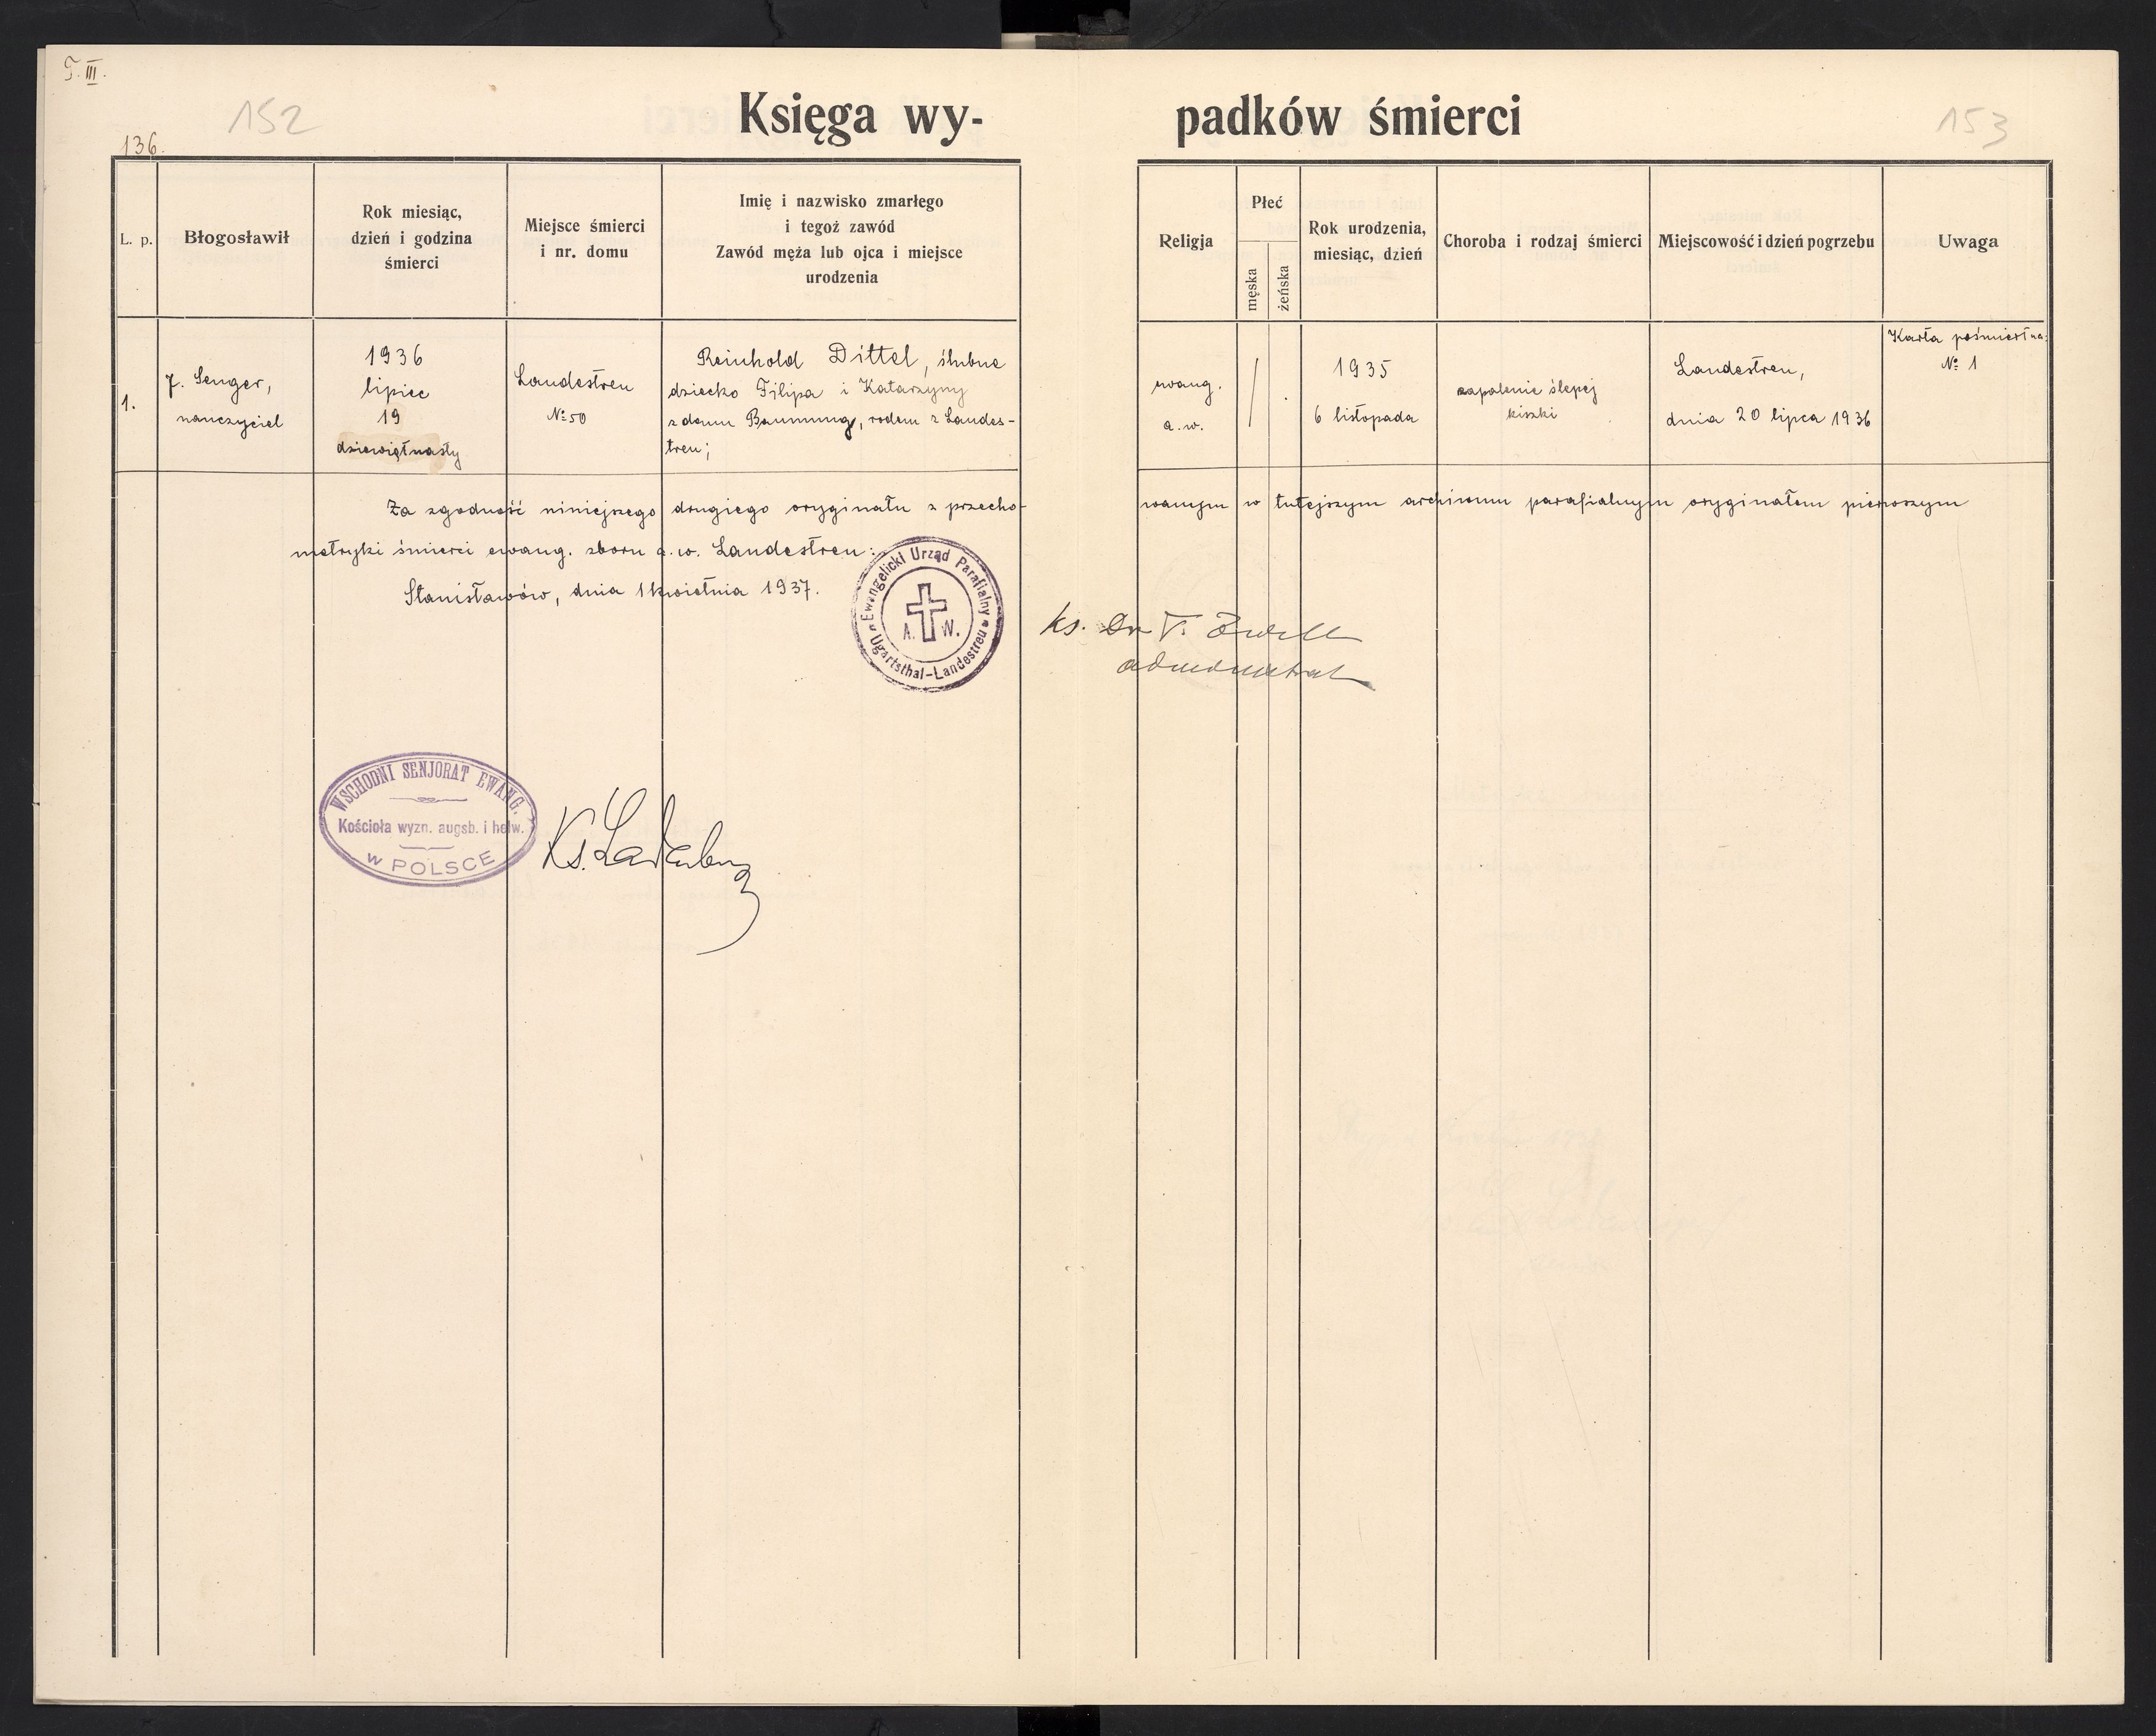 T. III.
152
136.
Księga wy-
padków śmierci
153
L. p.
Błogosławił
Rok miesiąc,
dzień i godzina
śmierci
Miejsce śmierci
i nr. domu
Imię i nazwisko zmarłego
i tegoż zawód
Zawód męża lub ojca i miejsce
urodzenia
Religja
Płeć
męska
żeńska
Rok urodzenia,
miesiąc, dzień
Choroba i rodzaj śmierci
Miejscowość i dzień pogrzebu
Uwaga
1.
J. Senger,
nauczyciel
1936
lipiec
19
dziewiętnasty
Landestreu
№ 50
Reinhold Dittel, ślubne
dziecko Filipa i Katarzyny
z domu Baumung, rodem z Landes-
treu;
ewang.
a. w.
1935
6 listopada
zapalenie ślepej
kiszki
Landestreu,
dnia 20 lipca 1936
Karta pośmiertna:
№ 1
Za zgodność niniejszego drugiego oryginału z przecho-
wanym w tutejszym archiwum parafialnym oryginałem pierwszym
metryki śmierci ewang. zboru a. w. Landestreu:
Stanisławów, dnia 1 kwietnia 1937.
Ewangelicki Urząd Parafialny
A. W.
Ugartsthal-Landestreu
Ks. Dr
WSCHODNI SENJORAT EWANG.
Kościoła wyzn. augsb. i helw.
w POLSCE
Ks.